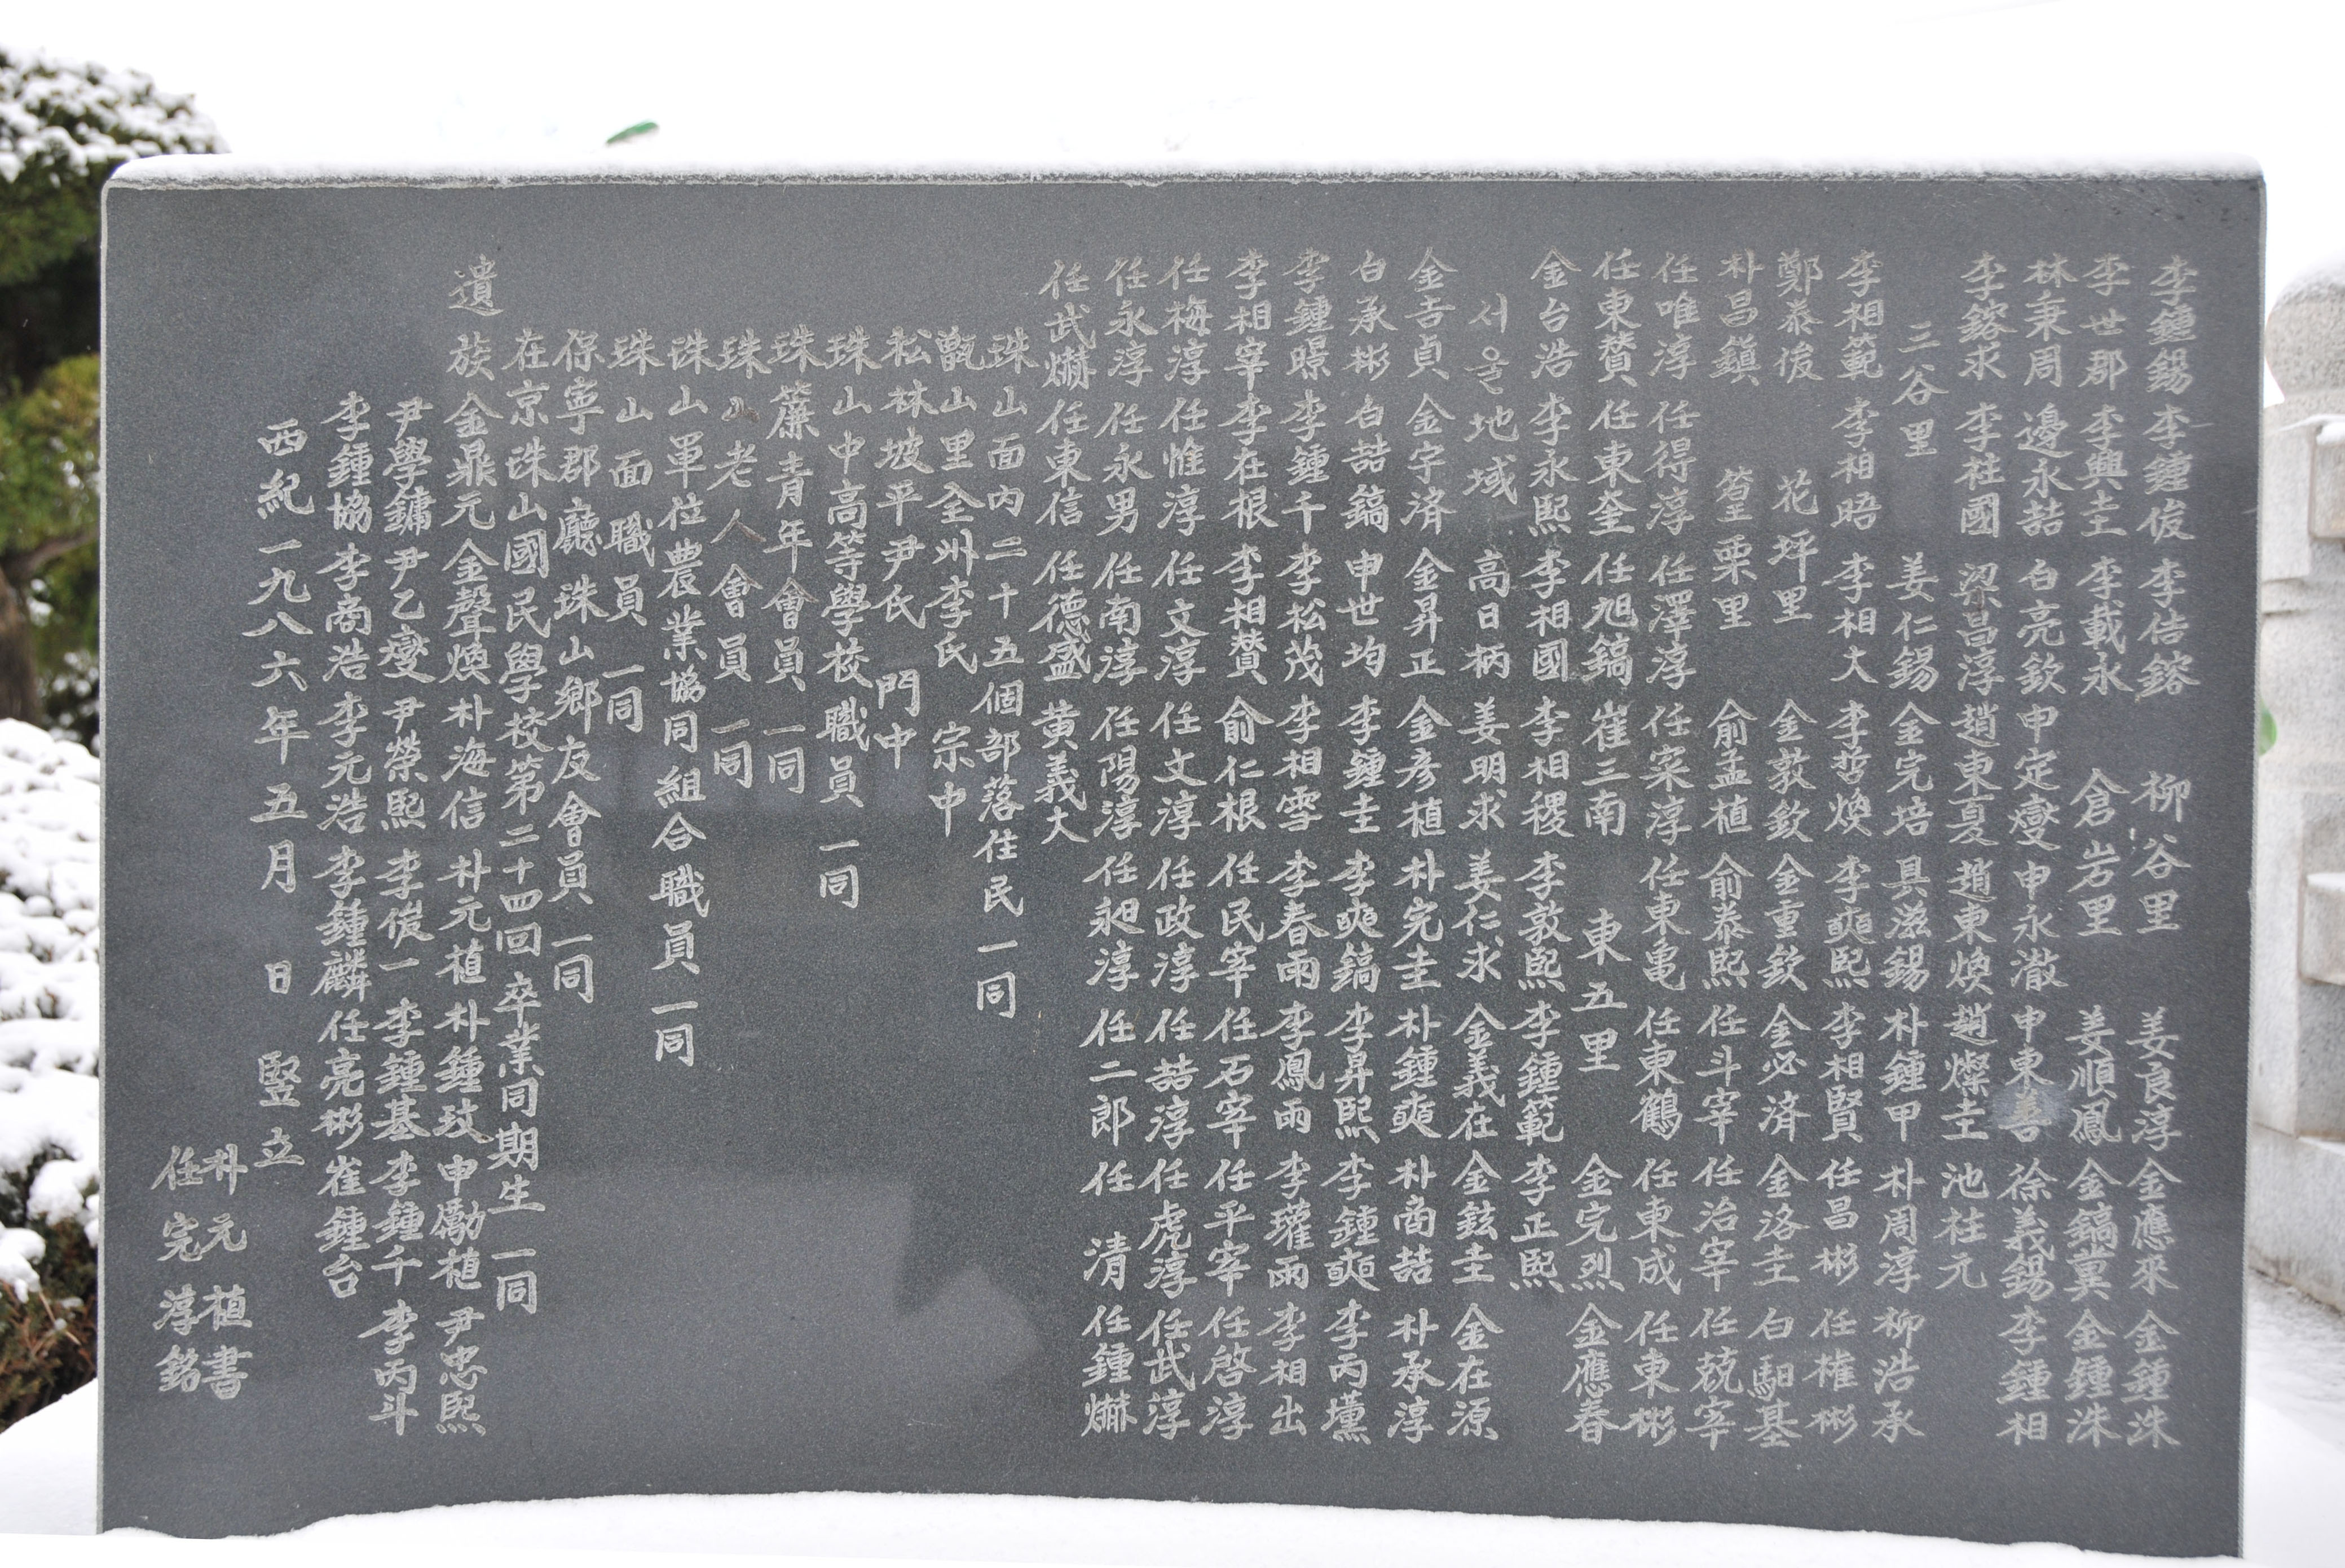 李鍾錫 李鍾俊 李佶鎔 柳谷里 姜良淳 金應來 金鍾洙
李世郡 李興圭 李載永 倉岩里 姜順鳳 金鎬冀 金鍾洙
林秉周 邊永喆 白亮欽 申定燮 申永澈 申東善 徐義錫 李鍾相
李鎔求 李柱國 梁昌淳 趙東夏 趙東煥 趙燦主 池柱元
三谷里 姜仁錫 金完培 具滋錫 朴鍾甲 朴周淳 柳浩承
李相範 李相晤 李相大 李哲煥 李奭熙 李相賢 任昌彬 任權彬
鄭泰俊 花坪里 金教欽 金重欽 金必済 金洛圭 白馹基
朴昌鎭 篁栗里 俞孟植 俞泰熙 任斗宰 任治宰 任兢宰
任唯淳 任得淳 任澤淳 任寀淳 任東亀 任東鶴 任東成 任東彬
任東贊 任東奎 任旭鎬 崔三南 東五里 金完烈 金應春
金台浩 李永熙 李相國 李相稷 李敦熙 李鍾範 李正熙
서울地域 高日柄 姜明求 姜仁求 金義在 金鉉圭 金在源
金吉貞 金宇済 金昇正 金彦植 朴完圭 朴鍾奭 朴商喆 朴承淳
白承彬 白喆鎬 申世均 李鍾圭 李奭鎬 李昇熙 李鍾奭 李丙壎
李鍾暻 李鍾千 李松茂 李相雪 李春雨 李鳳雨 李瓘雨 李相出
李相宰 李在根 李相贊 俞仁根 任民宰 任石宰 任平宰 任啓淳
任梅淳 任惟淳 任文淳 任文淳 任政淳 任喆淳 任虎淳 任武淳
任永淳 任永男 任南淳 任陽淳 任昶淳 任二郎 任 清 任鍾爀
任武爀 任東信 任德盛 黄義大
珠山面内二十五個部落住民一同
甑山里全州李氏 宗中
松林坡平尹氏 門中
珠山中高等學校職員 一同
珠簾青年會員 一同
珠山老人會員 一同
珠山單位農業協同組合職員一同
珠山面職員 一同
保寧郡廳 珠山鄉友會員一同
在京珠山國民學校第二十四回卒業同期生一同
遺族 金鼎元 金聲煥 朴海信 朴元植 朴鍾玟 申勵植 尹忠熙
尹學鏞 尹乙燮 尹榮熙 李俊一 李鍾基 李鍾千 李丙斗
李鍾協 李商浩 李元浩 李鍾麟 任亮彬 崔鍾台
西紀一九八六年五月 日 竪立
朴元植書
任完淳銘